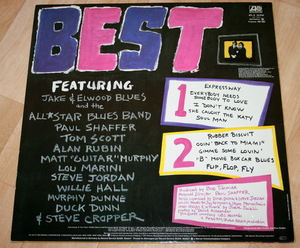 BEST
FEATURING
JAKE & ELWOOD BLUES
and the
ALL★STAR BLUES BAND
PAUL SHAFFER
TOM SCOTT
ALAN RUBIN
MATT "GUITAR" MURPHY
LOU MARINI
STEVE JORDAN
WILLIE HALL
MURPHY DUNNE
DUCK DUNN
& STEVE CROPPER
1
EXPRESSWAY
EVERYBODY NEEDS
SOMEBODY TO LOVE
I DON'T KNOW
SHE CAUGHT THE KATY
SOUL MAN
2
RUBBER BISCUIT
GOIN' BACK TO MIAMI
GIMME SOME LOVIN'
"B" MOVIE BOX CAR BLUES
FLIP, FLOP, FLY